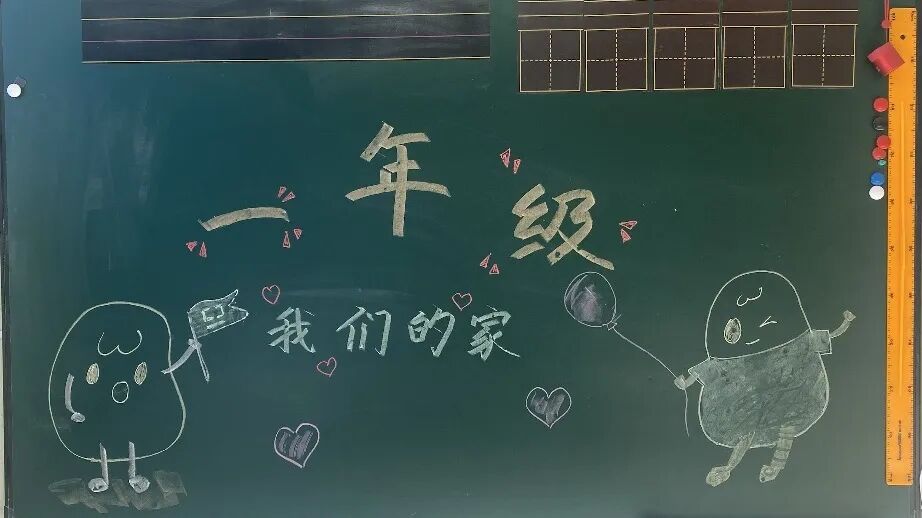 一年级
我们的家